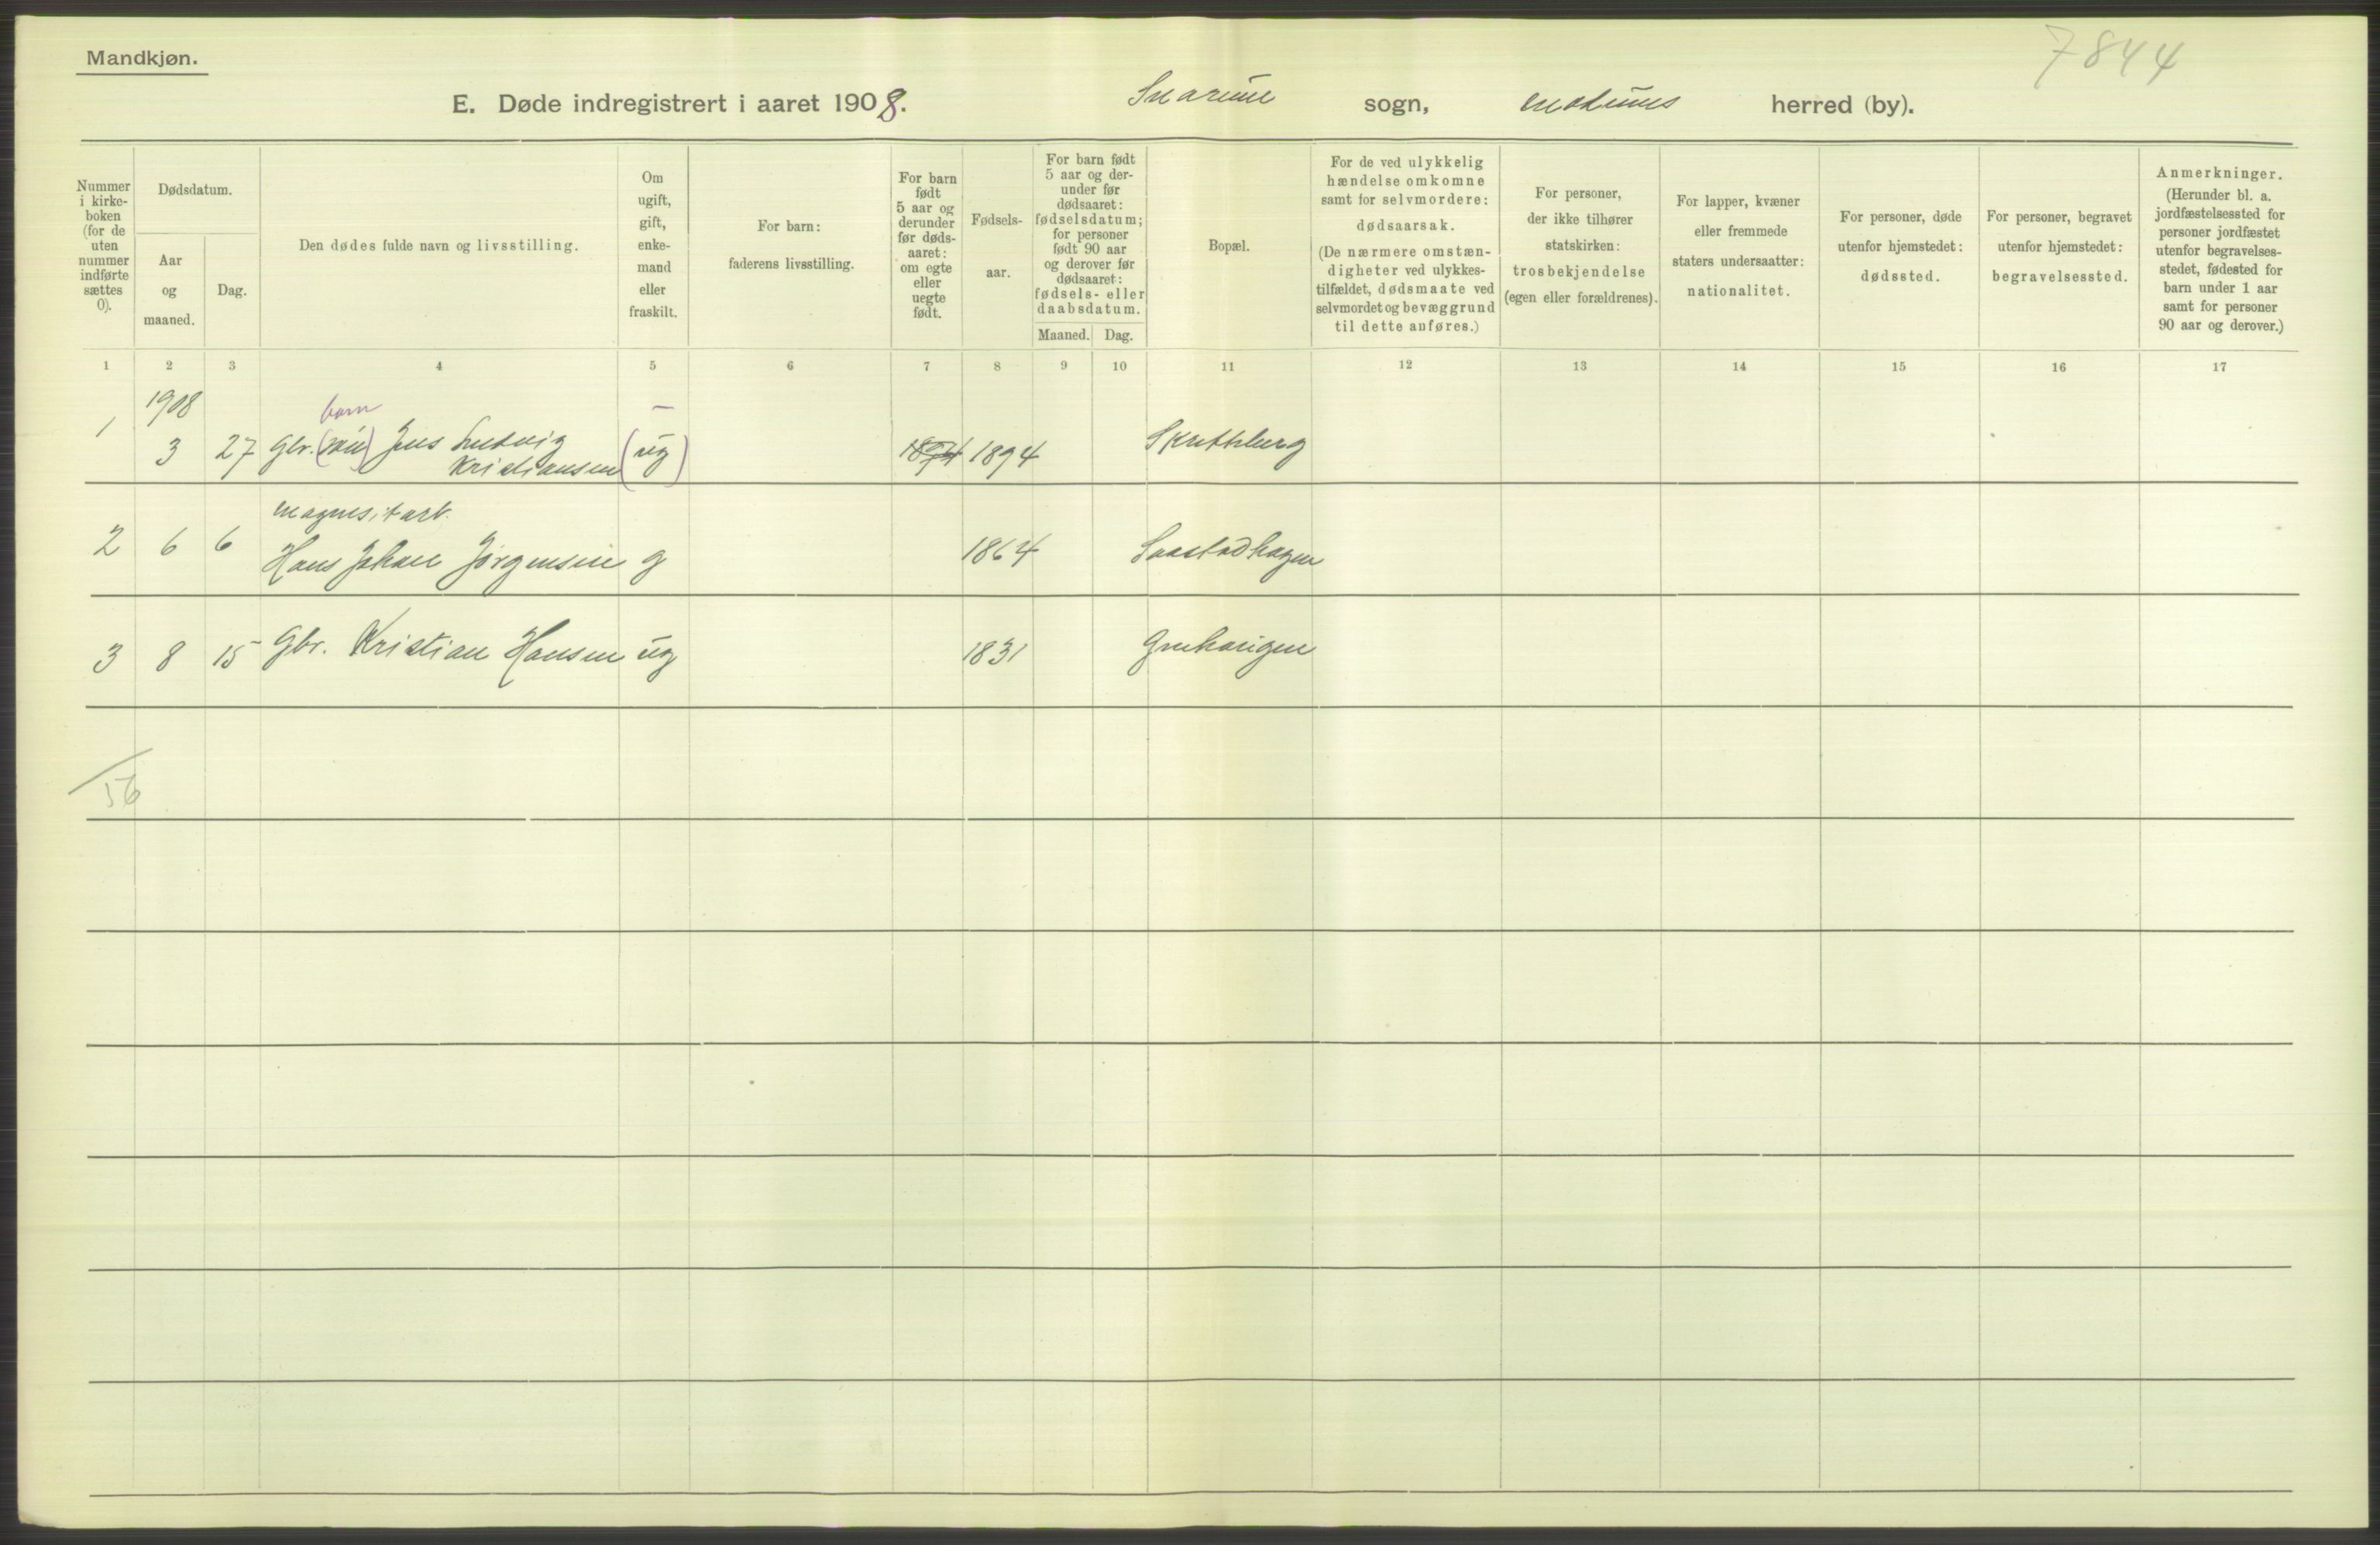 Mandkjøn.
7844
E. Døde indregistrert i aaret 1908. Snarum sogn, Modums herred (by).
Nummer i kirke-boken (for de uten nummer indførte sættes 0).
Dødsdatum.
Aar og maaned.
Dag.
Den dødes fulde navn og livsstilling.
Om ugift, gift, enke-mand eller fraskilt.
For barn: faderens livsstilling.
For barn født 5 aar og derunder før døds-aaret: om egte eller uegte født.
Fødsels-aar.
For barn født 5 aar og der-under før dødsaaret: fødselsdatum; for personer født 90 aar og derover før dødsaaret: fødsels- eller daabsdatum.
Maaned. Dag.
Bopæl.
For de ved ulykkelig hændelse omkomne samt for selvmordere: dødsaarsak. (De nærmere omstæn-digheter ved ulykkes-tilfældet, dødsmaate ved selvmordet og bevæggrund til dette anføres.)
For personer, der ikke tilhører statskirken: trosbekjendelse (egen eller forældrenes).
For lapper, kvæner eller fremmede staters undersaatter: nationalitet.
For personer, døde utenfor hjemstedet: dødssted.
For personer, begravet utenfor hjemstedet: begravelsessted.
Anmerkninger. (Herunder bl. a. jordfæstelsessted for personer jordfæstet utenfor begravelses-stedet, fødested for barn under 1 aar samt for personer 90 aar og derover.)
1 2 3 4 5 6 7 8 9 10 11 12 13 14 15 16 17
1908
barn –
1 3 27 Gbr. (søn) Jens Ludvig (ug) 1894 1894
Kristiansen
magnesitarb.
2 6 6 Hans Johan Jørgensen g 1864 Saastadhagen
3 8 15 Gbr. Kristian Hansen ug 1831
56